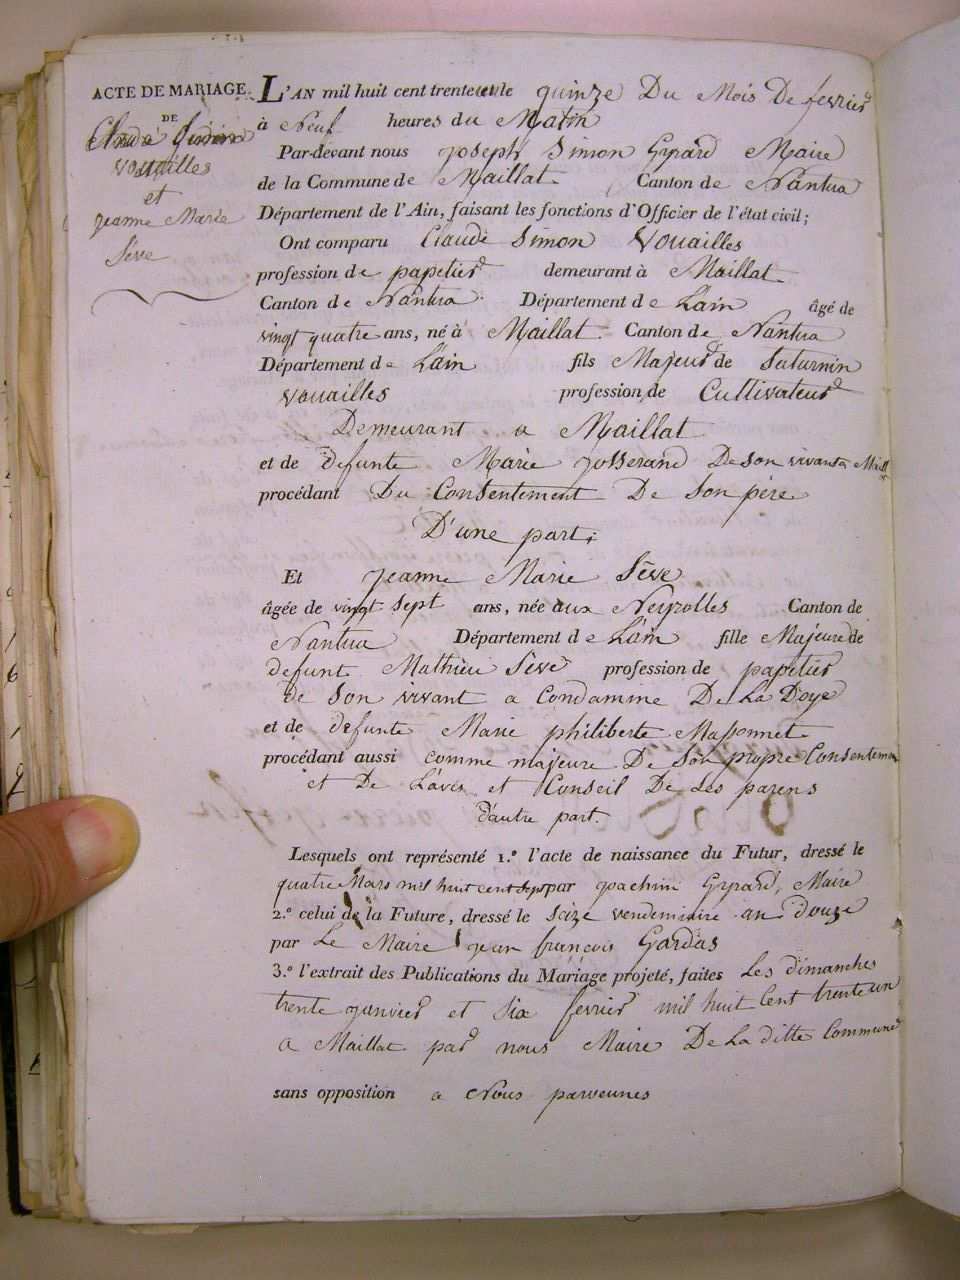 ACTE DE MARIAGE
DE
Claude Simon
Vouailles
et
jeanne Marie
Sève
L'AN mil huit cent trente un le quinze Du Mois De fevrier
à Neuf heures du Matin
Par-devant nous joseph Simon Gyrard Maire
de la Commune de Maillat Canton de Nantua
Département de l'Ain, faisant les fonctions d'Officier de l'état civil;
Ont comparu Claude Simon Vouailles
profession de papetier demeurant à Maillat
Canton de Nantua Département de L'ain âgé de
vingt quatre ans, né à Maillat Canton de Nantua
Département de L'ain fils Majeur de Saturnin
Vouailles profession de Cultivateur
Demeurant a Maillat
et de defunte Marie josserand De son vivant a Maill
procédant Du Consentement De Son père
D'une part;
Et jeanne Marie Sève
âgée de vingt sept ans, née aux Neyrolles Canton de
Nantua Département de L'ain fille Majeure de
defunt Mathieu Sève profession de papetier
de Son vivant a Condamme De La Doye
et de defunte Marie philiberte Massonnet
procédant aussi comme majeure De Son propre Consentemen
et De L'avis et Conseil De Ses parens
d'autre part.
Lesquels ont représenté 1.º l'acte de naissance du Futur, dressé le
quatre Mars mil huit cent sept par joachim Gyrard, Maire
2.º celui de la Future, dressé le Seize vendemiaire an douze
par Le Maire jean françois Gardas
3.º l'extrait des Publications du Mariage projeté, faites Les dimanches
trente janvier et Six fevrier mil huit Cent trente un
a Maillat par nous Maire De La ditte Commune
sans opposition a Nous parveunes